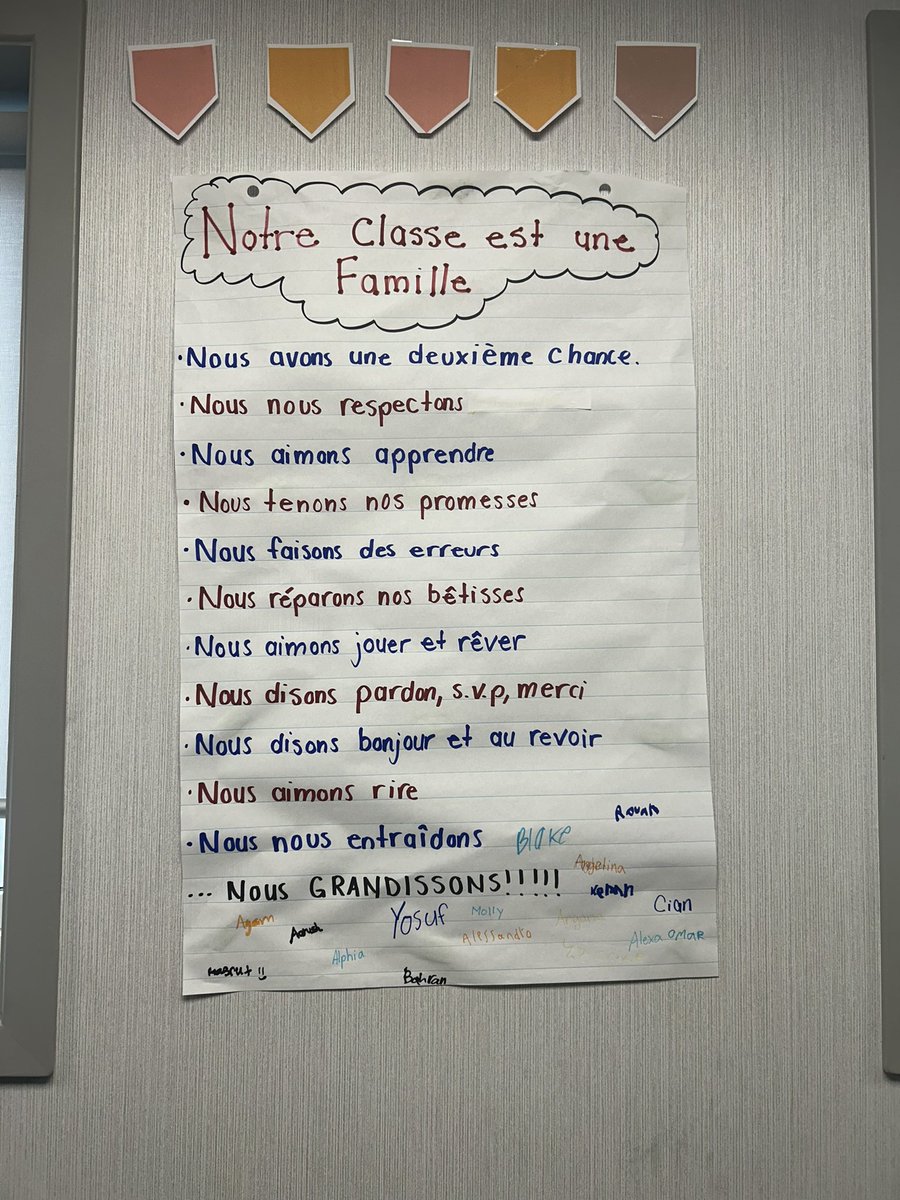 Notre Classe est une
Famille
·Nous avons une deuxième chance.
·Nous nous respectons
·Nous aimons apprendre
·Nous tenons nos promesses
·Nous faisons des erreurs
·Nous réparons nos bêtisses
·Nous aimons jouer et rêver
·Nous disons pardon, s.v.p, merci
·Nous disons bonjour et au revoir
·Nous aimons rire
·Nous nous entraîdons
Blake
Angelina
... Nous GRANDISSONS!!!!!
Cian
Yosuf
Molly
Alessandro
Alexa
OMAR
Alphia
Bahran